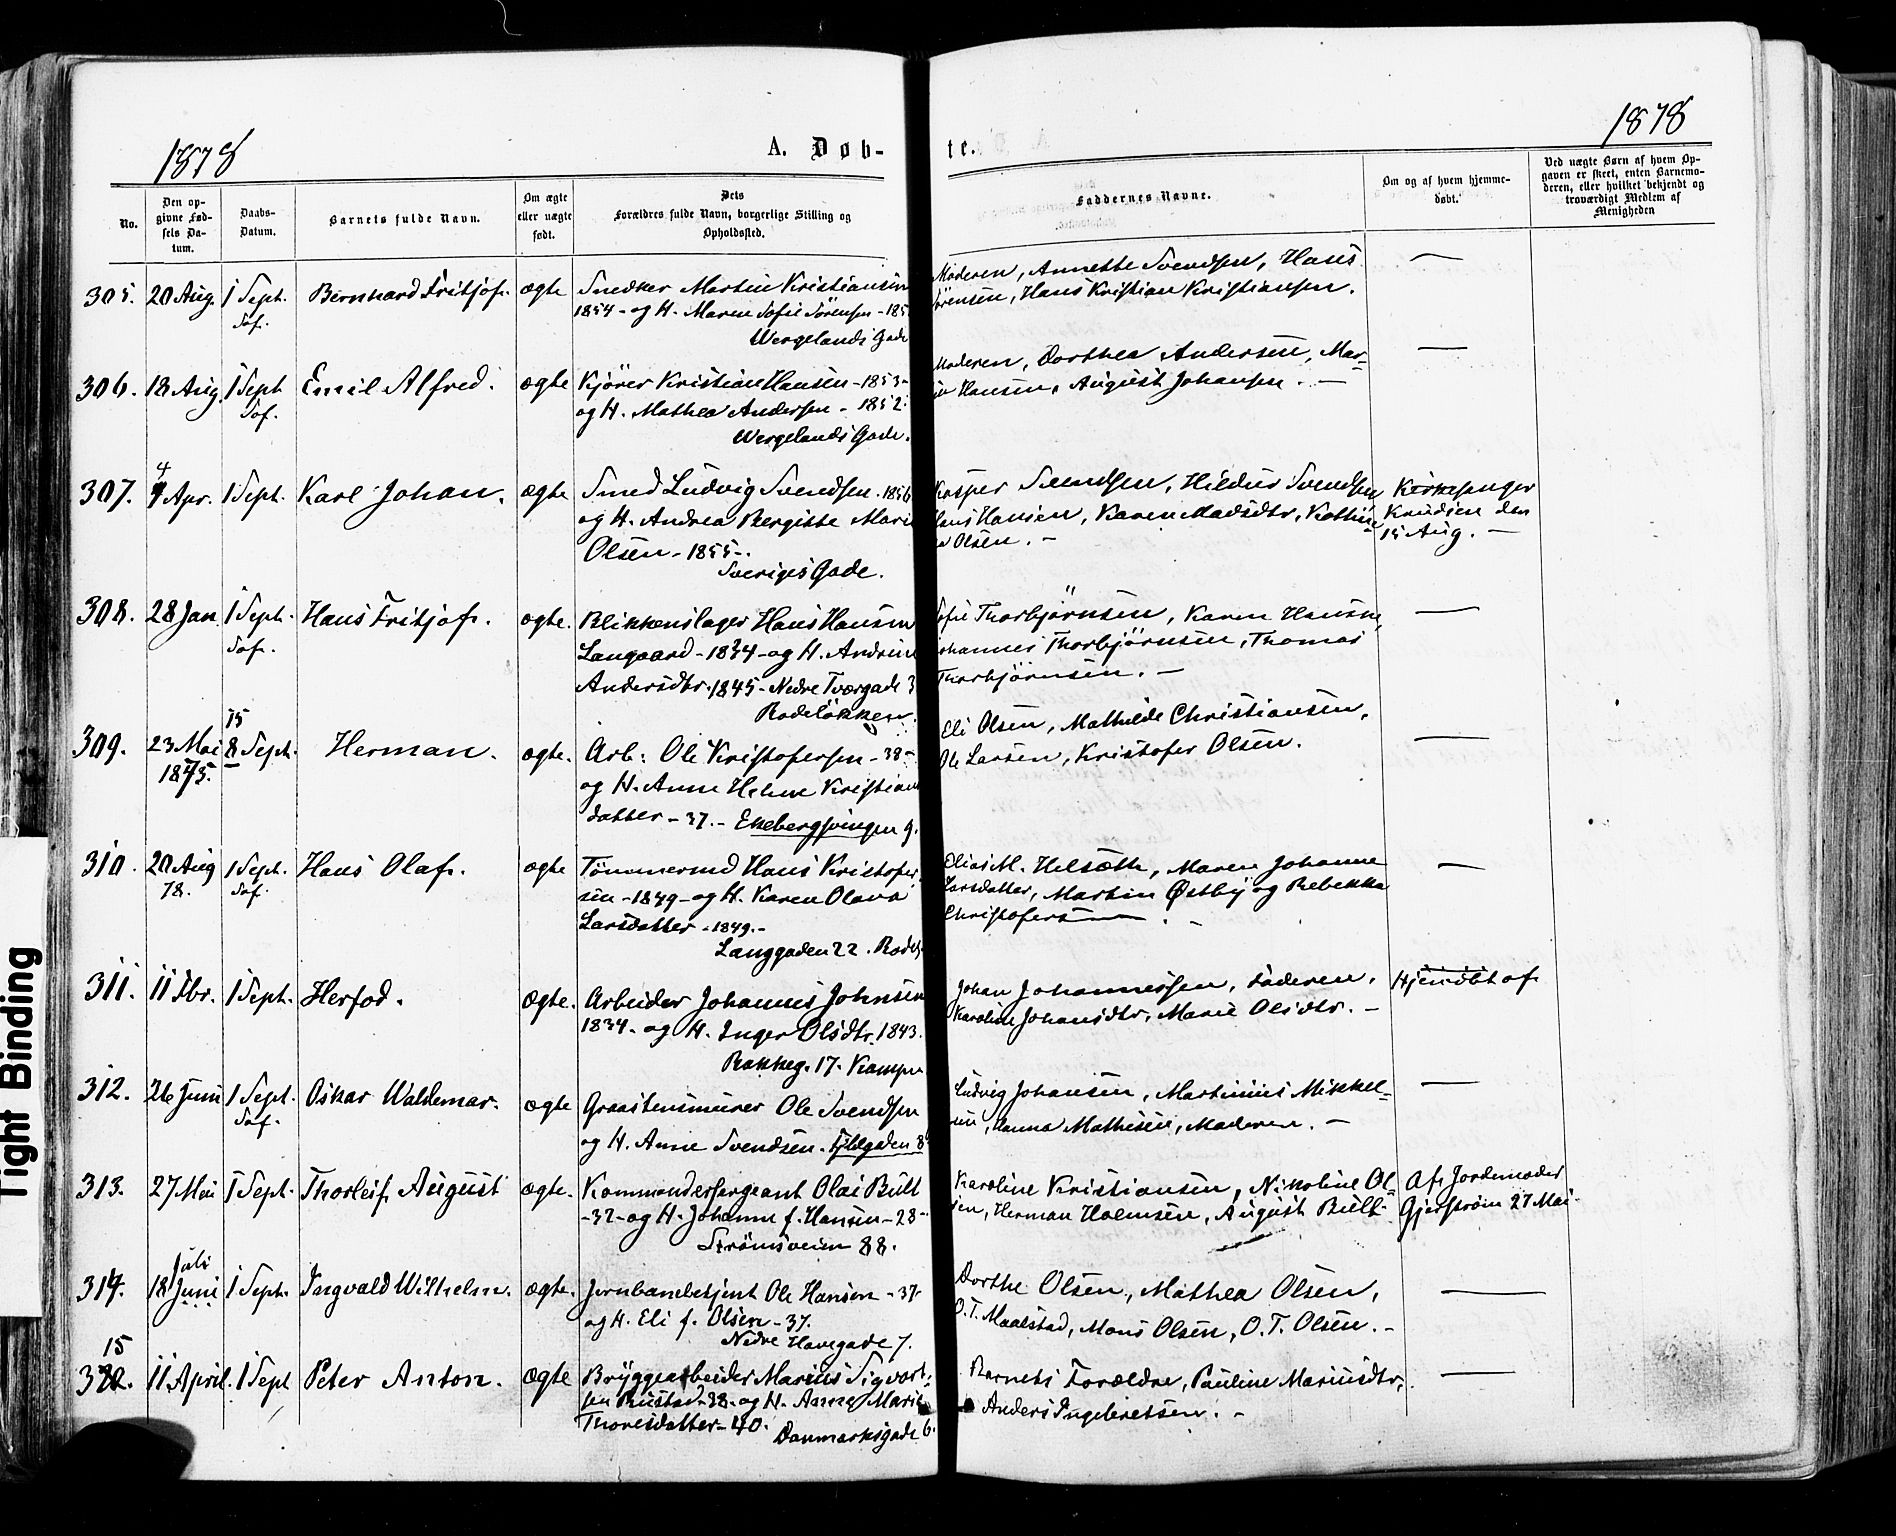 1878
A. Døb-
No.
Den op-
givne Fød-
sels Da-
tum.
Daabs-
Datum.
Barnets fulde Navn.
Om ægte
eller uægte
født.
Dets
Forældres fulde Navn, borgerlige Stilling og
Opholdssted.
305. 20 Aug. 1 Sept. Bernhard Fritjof. ægte Snedker Martin Kristiansen
Sof. 1854 - og H. Maren Sofie Sörensen - 185
Wergelands Gade
306. 18 Aug. 1 Sept Emil Alfred. ægte Kjörer Kristian Hansen - 1853 -
Sof. og H. Mathea Andersen - 1852.
Wergelands Gade.
4
307. Apr. 1 Sept. Karl Johan. ægte Smed Ludvig Svendsen. 1856
og H. Andrea Bergitte Marie
Olsen - 1855 -.
Sveriges Gade.
308. 28 Jan 1 Sept. Hans Fritjof. ægte. Blikkenslager Hans Hansen
Sof. Langaard - 1834 - og H. Andrine
Andersdtr. 1845 - Nedre Tværgade 3
Rodelökken.
15
309. 23 Mai 8 Sept. Herman. ægte. Arb: Ole Kristofersen - 38 -
1875. og H. Anne Helene Kristians
datter - 37. - Ekebergsvingen 9.
310. 20 Aug 1 Sept. Hans Olaf. ægte Tömmermd Hans Kristofer
78. Sof. sen - 1849 - og H. Karen Olava
Larsdatter - 1849. -
Langgaden 22. Rodel
311. 11 Fbr. 1 Sept. Herfod. ægte. Arbeider Johannes Johnsen
1834 - og H. Inger Olsdtr. 1843.
Bakkeg. 17. Kampen
312. 26 Juni 1 Sept. Oskar Waldemar. ægte Graastensmurer Ole Svendsen
Sof. og H. Anne Svendsen.
313. 27 Mai 1 Sept. Thorleif August ægte. Kommandersergeant Olai Bült
- 32 - og H. Johanne f. Hansen - 28 -
Strömsveien 88.
Juli
314. 18 Juni 1 Sept. Ingvald Wilhelm. ægte. Jernbanebetjent Ole Hansen - 37-
og H. Eli f. Olsen - 37.
Nedre Havegade 7.
15
322. 11 April. 1 Sept Peter Anton. ægte Bryggearbeider Marius Sigvart-
sen Rustad - 38 - og H. Anna Marie
Thoresdatter - 40. Danmarksgade 6.
1878
te.
Faddernes Navne.
Om og af hvem hjemme-
døbt.
Ved uægte Børn af hvem Op-
gaven er skeet, enten Barnemo-
deren, eller hvilket bekjendt og
troværdigt Medlem af
Menigheden
Moderen, Annette Svendsen, Hans
Sörensen, Hans Kristian Kristiansen.
Moderen, Dorthea Andersen, Mar-
in Hansen, August Johansen. -
Kasper Svendsen, Hildur Svendsen Kirkesanger
Hans Hansen, Karen Madsdtr, Kathin Knudsen den
a Olsen. - 15 Aug. -
Sofie Thorbjörnsen, Karen Hansen,
Johannes Thorbjörnsen, Thomas
Thorbjörnsen. -
Eli Olsen, Mathilde Christiansen,
Ole Larsen, Kristofer Olsen.
Elias M. Helsæth, Maren Johanne
Larsdatter, Martin Østby og Rebekka
Christofersen.
Johan Johannessen, Faderen, Hjemdöbt af
Karoline Johansdtr, Marie Olsdtr. -
Ludvig Johansen, Martinius Mikkel-
sen, Hanna Mathisen, Moderen. -
Karoline Kristiansen, Nikoline Ol- Af Jordemoder
sen, Herman Holmsen, August Bült. Gjerström 27 Mai
Dorthe Olsen, Mathea Olsen,
O. T. Maalstad, Mons Olsen, O. T. Olsen. -
Barnets Forældre, Pauline Mariusdtr,
Anders Ingebretsen. -
Tight Binding